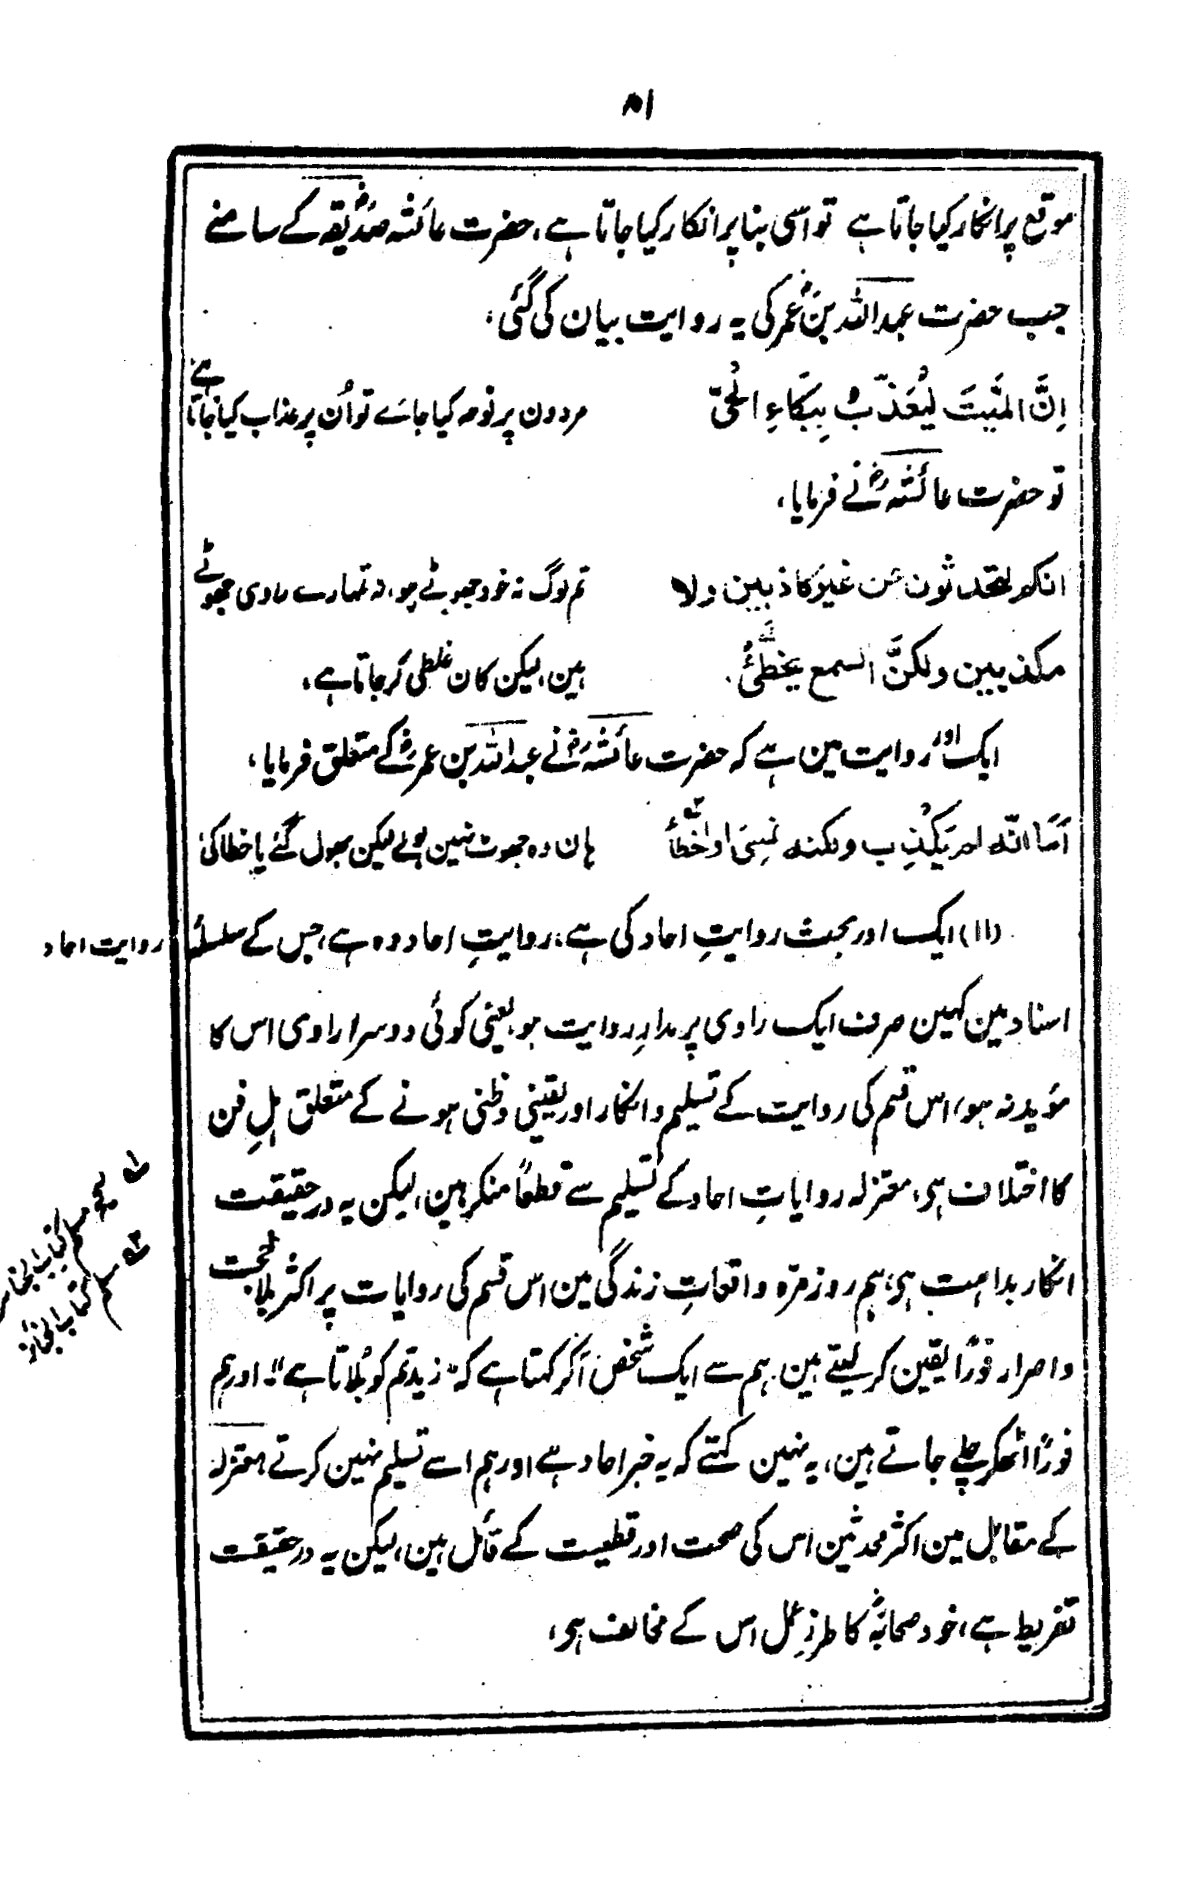 ۸۱
موقع پر انکار کیا جاتا ہے تو اسی بنا پر انکار کیا جاتا ہے، حضرت عائشہ صدیقہؓ کے سامنے
جب حضرت عبداللہ بن عمرؓ کی یہ روایت بیان کی گئی،
اِنَّ المَیِّتَ لَیُعَذَّبُ بِبُکَاءِ الْحَیّ مردون پر نوحہ کیا جائے تو اُن پر عذاب کیا جاتا ہے
تو حضرت عائشہؓ نے فرمایا،
انکم لتحدثون عن غیر کاذبین ولا تم لوگ نہ خود جھوٹے ہو، نہ تمہارے راوی جھوٹے
مکذبین ولکنَّ السمع یخطئُ، ہین، لیکن کان غلطی کر جاتا ہے،
ایک اور روایت مین ہے کہ حضرت عائشہؓ نے عبداللہ بن عمرؓ کے متعلق فرمایا،
اَمَا انّہ لم یَکْذِب ولکنہ نسِیَ او اخطأ ہان وہ جھوٹ نہین بولے لیکن بھول گئے یا خطا کی،
(۱۱) ایک اور بحث روایتِ احاد کی ہے، روایتِ احاد وہ ہے، جس کے سلسلۂ
روایت احاد
اسناد مین کہین صرف ایک راوی پر مدارِ روایت ہو، یعنی کوئی دوسرا راوی اس کا
مؤید نہ ہو، اس قسم کی روایت کے تسلیم و انکار اور یقینی و ظنی ہونے کے متعلق اہلِ فن
کا اختلاف ہی، معتزلہ روایاتِ احاد کے تسلیم سے قطعاً منکر ہین، لیکن یہ درحقیقت
انکار بداہت ہی، ہم روزمرّہ واقعاتِ زندگی مین اس قسم کی روایات پر اکثر بلا حجت
و اصرار فوراً یقین کر لیتے ہین، ہم سے ایک شخص آکر کہتا ہے کہ "زید تم کو بُلاتا ہے"۔ اور ہم
فوراً اٹھکر چلے جاتے ہین، یہ نہین کہتے کہ یہ خبر احاد ہے اور ہم اسے تسلیم نہین کرتے معتزلہ
کے مقابل مین اکثر محدثین اس کی صحت اور قطعیت کے قائل ہین، لیکن یہ درحقیقت
تفریط ہے، خود صحابہؓ کا طرزِ عمل اس کے مخالف ہو،
۱؎ صحیح مسلم کتاب الجنائز
۲؎ مسلم کتاب الجنائز